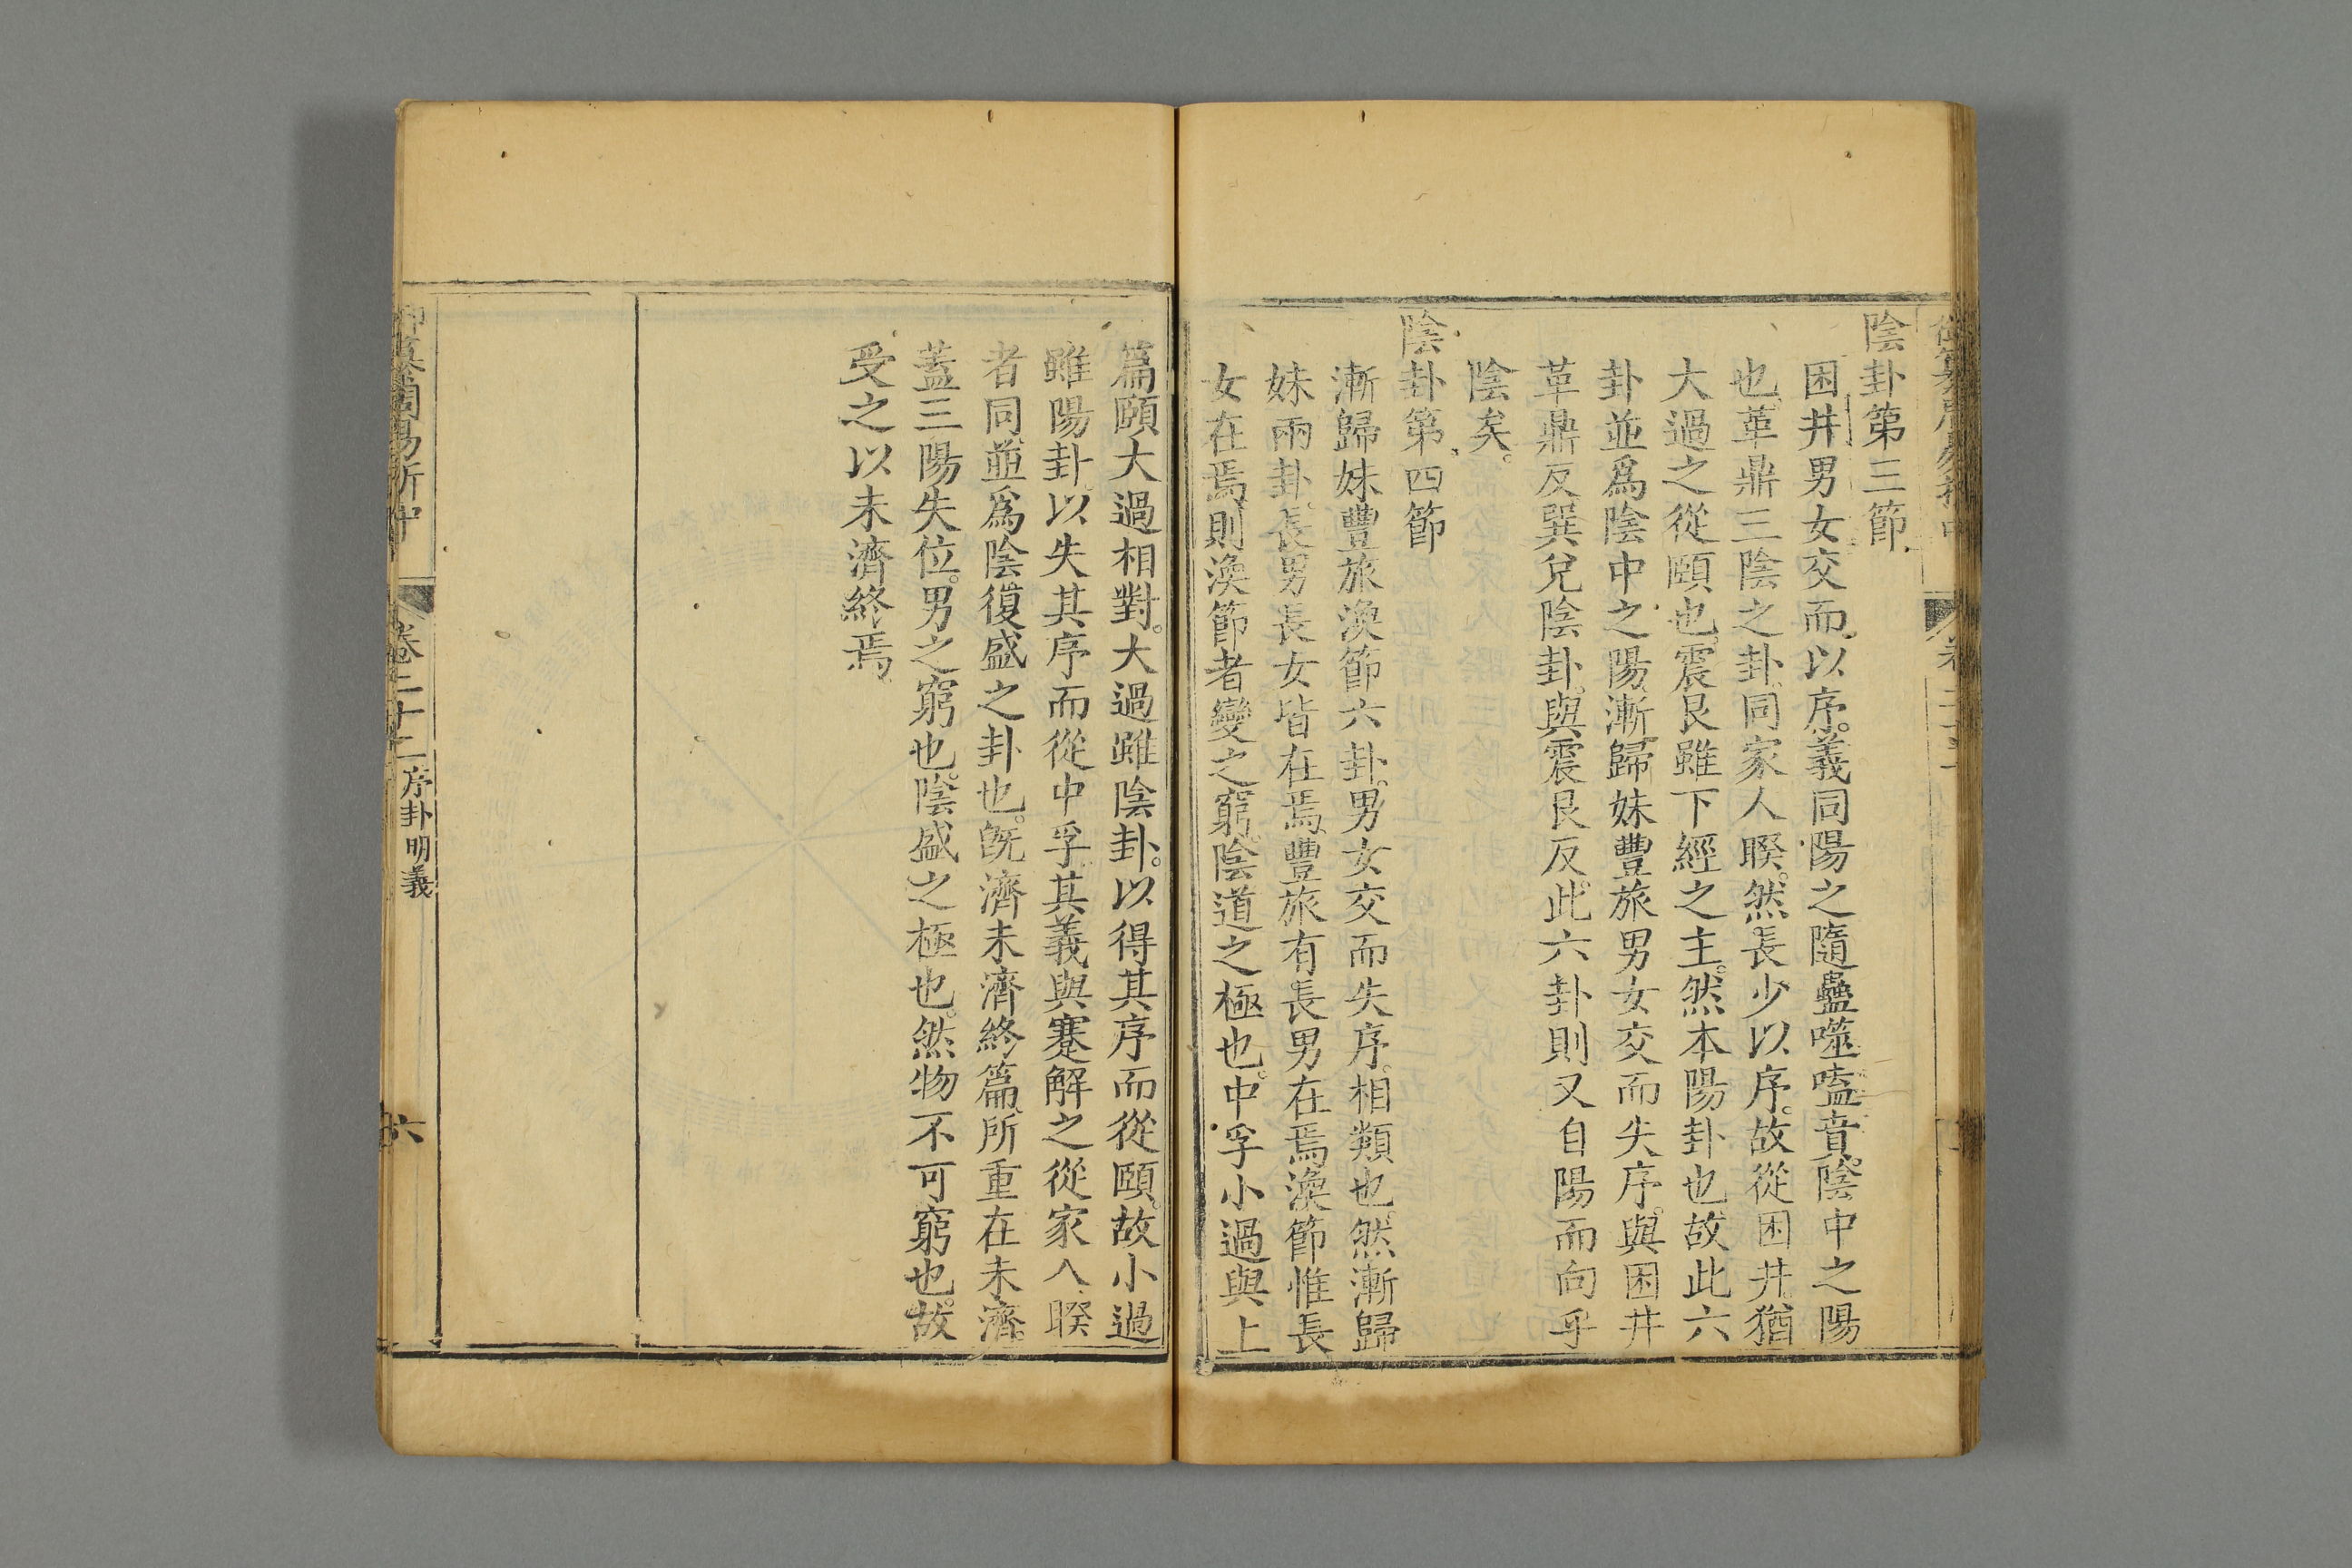 陰卦第三節
困井男女交而以序。義同陽之隨蠱噬嗑賁。陰中之陽
也。革鼎三陰之卦。同家人睽。然長少以序。故從困井。猶
大過之從頤也。震艮雖下經之主。然本陽卦也。故此六
卦並爲陰中之陽。漸歸妹豐旅男女交而失序。與困井
革鼎反巽兌陰卦。與震艮反。此六卦則又自陽而向乎
陰矣。
陰卦第四節
漸歸妹豐旅渙節六卦。男女交而失序。相類也。然漸歸
妹兩卦。長男長女皆在焉。豐旅有長男在焉。渙節惟長
女在焉。則渙節者變之窮。陰道之極也。中孚小過與上
篇頤大過相對。大過雖陰卦。以得其序而從頤。故小過
雖陽卦。以失其序而從中孚。其義與蹇解之從家人睽
者同。並爲陰復盛之卦也。旣濟未濟終篇。所重在未濟。
蓋三陽失位。男之窮也。陰盛之極也。然物不可窮也。故
受之以未濟終焉。
卷二十二 序卦明義
六